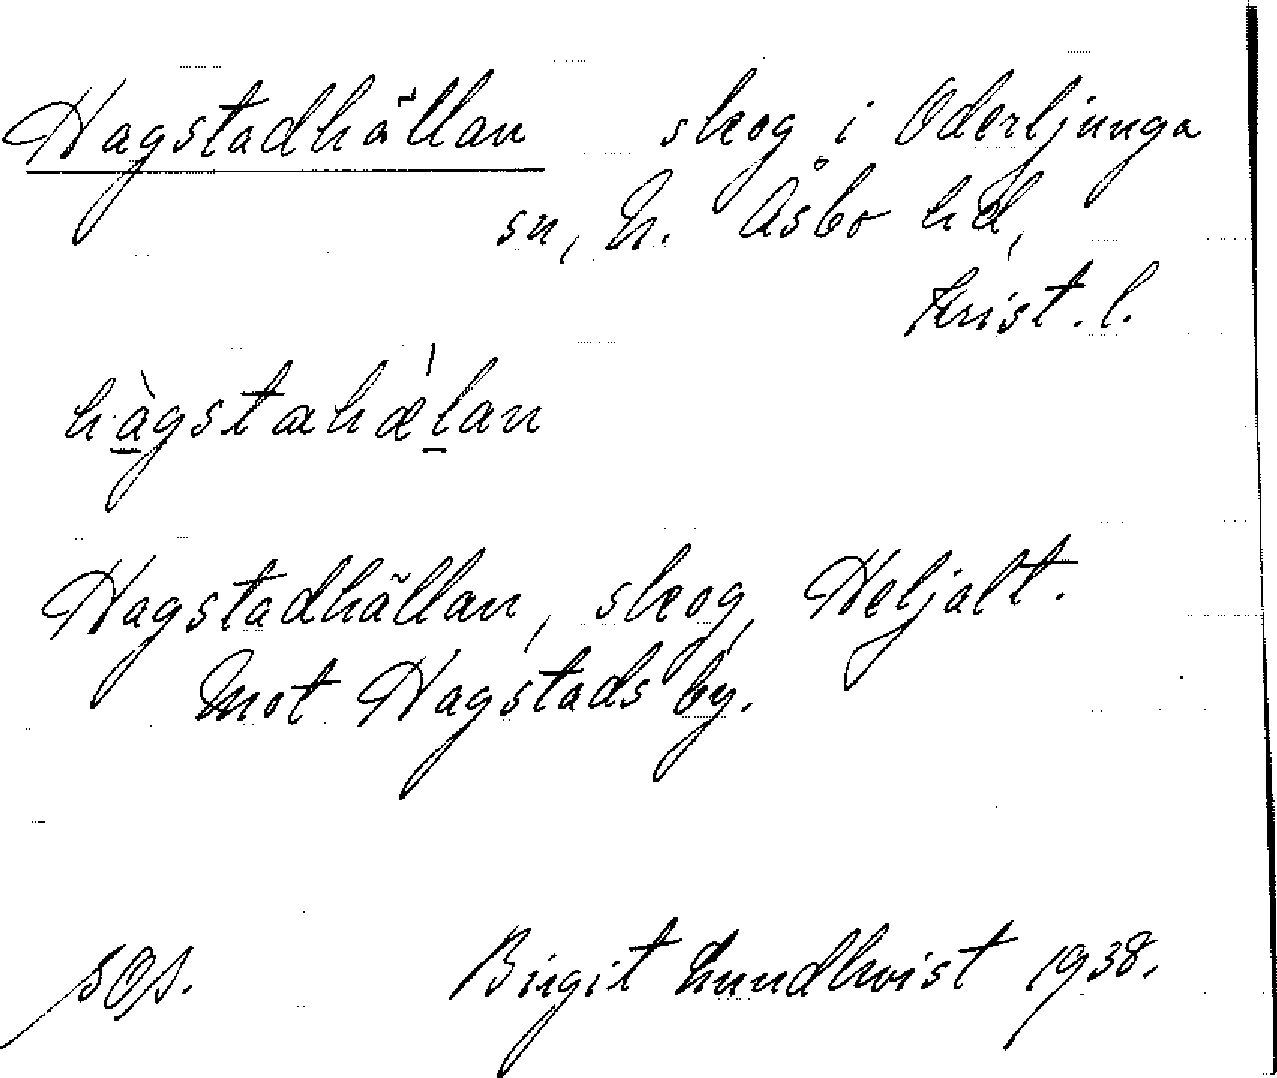 Hagstadhällan skog i Oderljunga
sn, N. Åsbo hd,
Krist. l.
hàgstahæ̀lan
Hagstadhällan, skog, Heljalt.
Mot Hagstads by.
Birgit Lundkvist 1938.